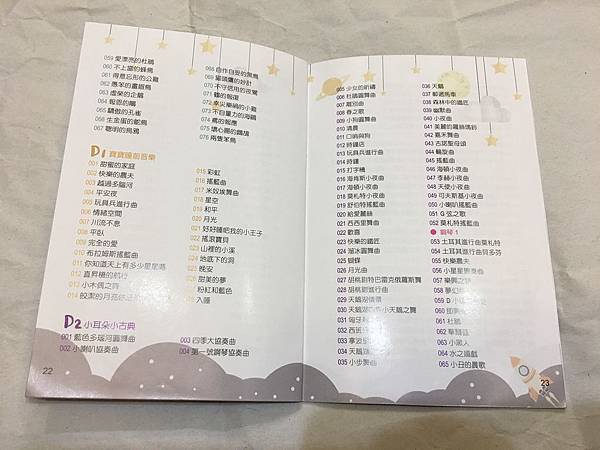 059 愛漂亮的杜鵑
060 不上當的蜂鳥
061 得意忘形的公雞
062 愚笨的畫眉鳥
063 虛榮的企鵝
064 報恩的鵰
065 驕傲的孔雀
066 生金蛋的鴕鳥
067 聰明的烏鴉
068 自作自受的黑鳥
069 貓頭鷹的好計
070 不守信用的夜鶯
071 鶴的報復
072 幸災樂禍的小雞
073 不自量力的海鷗
074 鳶的報應
075 壞心腸的鸚鵡
076 兩隻笨鳥
D1 寶寶睡前音樂
001 甜蜜的家庭
002 快樂的農夫
003 越過多腦河
004 平安夜
005 玩具兵進行曲
006 情緒空間
007 川流不息
008 平臥
009 完全的愛
010 布拉姆斯搖籃曲
011 你知道天上有多少星星嗎
012 直昇機的航行
013 小木偶之舞
014 皎潔的月亮你
015 彩虹
016 搖籃曲
017 米奴埃舞曲
018 星空
019 和平
020 月光
021 好好睡吧我的小王子
022 搖滾寶貝
023 山裡的小溪
024 地底下的洞
025 晚安
026 甜美的夢
粉紅和藍色
入睡
D2 小耳朵小古典
001 藍色多瑙河圓舞曲
002 小喇叭協奏曲
003 四季大協奏曲
004 第一號鋼琴協奏曲
22
005 少女的祈禱
006 杜鵑圓舞曲
007 離別曲
008 春之歌
009 小狗圓舞曲
010 清晨
011 口哨與狗
012 時鐘店
013 玩具兵進行曲
014 時鐘
015 打字機
016 海肯斯小夜曲
017 海頓小夜曲
018 莫札特小夜曲
019 舒伯特搖籃曲
020 給愛麗絲
021 西西里舞曲
022 歡喜
023 快樂的鐵匠
024 溜冰圓舞曲
025 蝴蝶
026 月光曲
027 胡桃鉗特巴雷克俄羅斯舞
028 胡桃鉗進行曲
029 天鵝湖情景
030 天鵝湖四隻小天鵝之舞
031 匈牙利
032 西班牙
033 寧波
034 天鵝湖
035 小步舞曲
036 天鵝
037 郵遞馬車
038 森林中的鐵匠
039 幽默曲
040 小夜曲
041 美麗的羅絲瑪莉
042 嘉禾舞曲
043 古諾聖母頌
044 輪旋曲
045 搖籃曲
046 海頓小夜曲
047 李赫小夜曲
048 天使小夜曲
049 可夫斯基小夜曲
050 小喇叭搖籃曲
051 G 弦之歌
052 莫札特搖籃曲
鋼琴 1
053 土耳其進行曲莫札特
054 土耳其進行曲貝多芬
055 快樂農夫
056 小星星變奏曲
057 樂興之時
058 夢幻曲
059 D 小調
060 即興曲
061 杜鵑
062 華爾滋
063 小黑人
064 水之嬉戲
065 小丑的晨歌
23